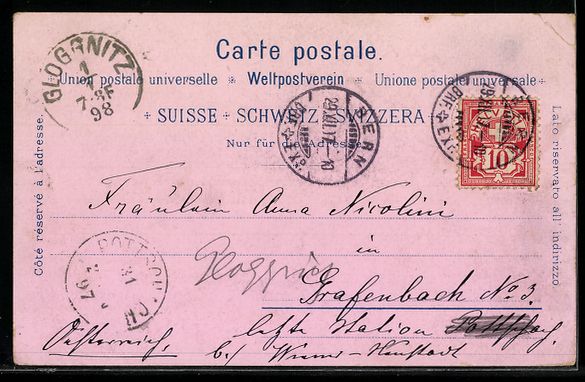 Carte postale.
Union postale universelle • Weltpostverein • Unione postale universale
SUISSE SCHWEIZ SVIZZERA
Nur für die Adresse.
Côté réservé à l'adresse.
Lato riservato all' indirizzo
GLOGGNITZ
1
98
BERN
10
Fräulein Anna Nicolini
in
Gloggnitz
Grafenbach No 3.
letzte Station
Oesterreich.
bei Wiener-Neustadt
POTTSCH
31
97